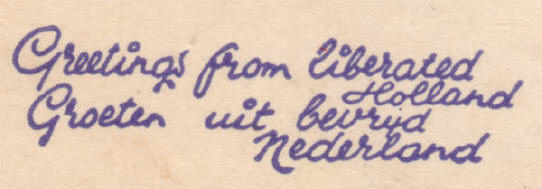 Greetings from liberated
Holland
Groeten uit bevrijd
Nederland